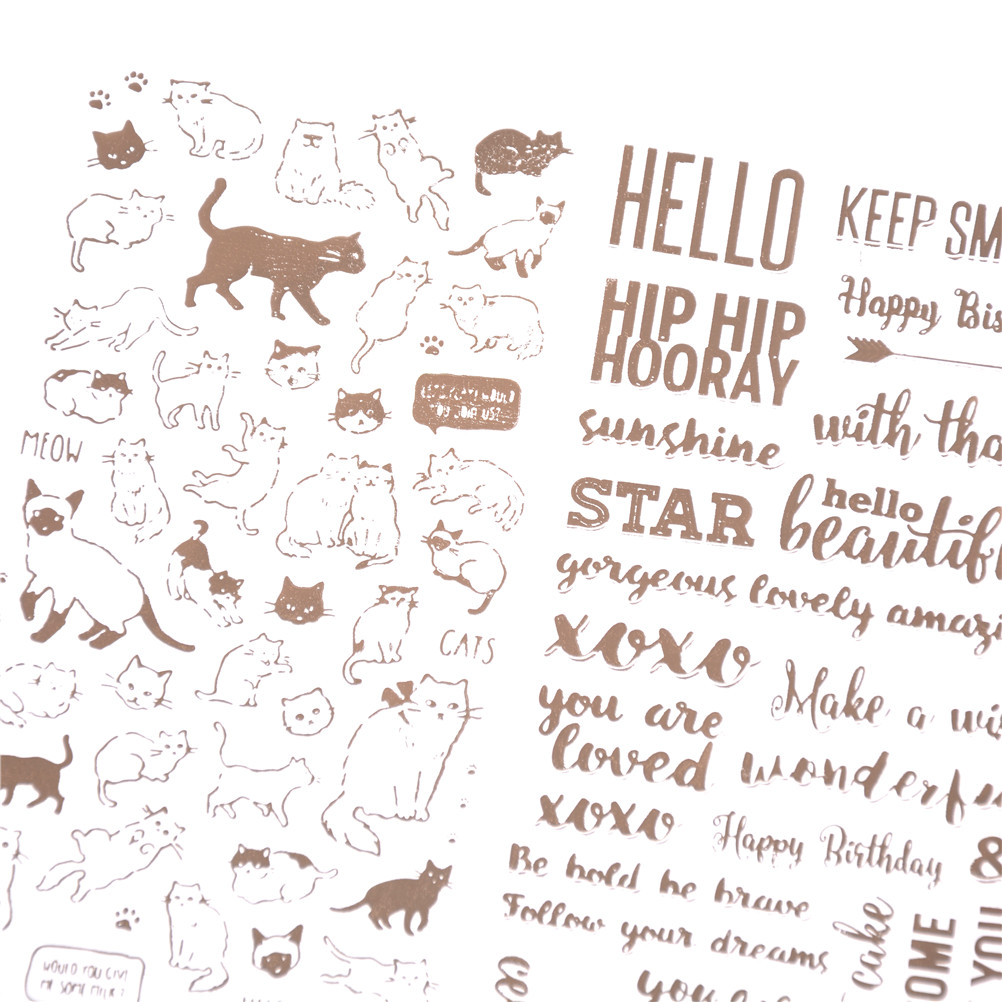 LET'S PLAY! WOULD
YOU JOIN US?
MEOW
CATS
WOULD YOU GIVE
ME SOME MILK?
HELLO
KEEP SM
HIP HIP
HOORAY
Happy Bis
sunshine
with tha
STAR
hello
beautif
gorgeous lovely amazi
xoxo
Make a wi
you are
loved
wonderfu
xoxo
Happy Birthday
&
Be bold be brave
Follow your dreams
cake
OME
YOU